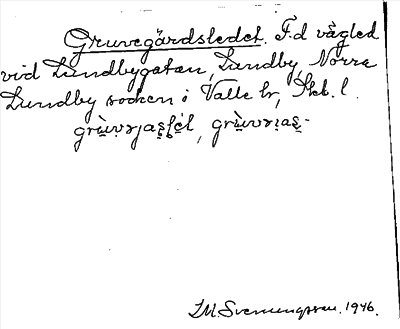 Gruvegårdsledet. F.d vägled
vid Lundbygatan, Lundby, Norra
Lundby socken i Valle hr, Skb. l.
J M Svennungsson. 1946.